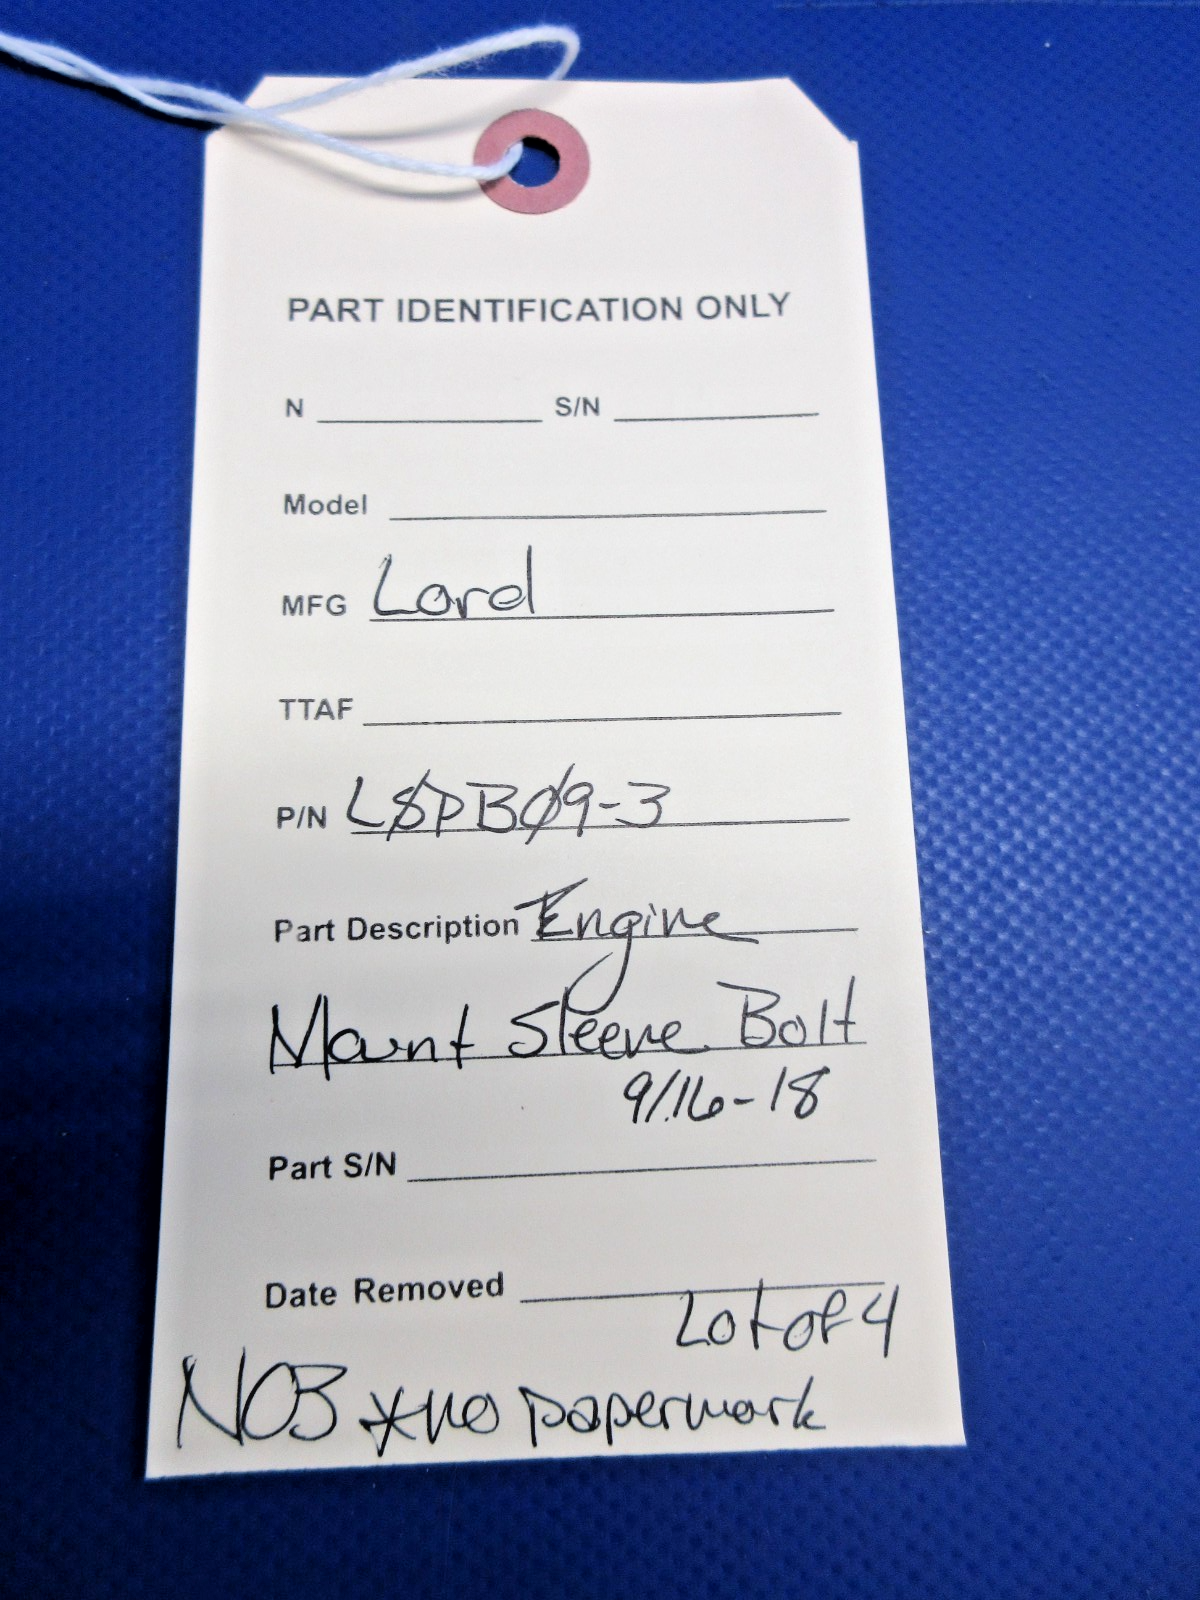 PART IDENTIFICATION ONLY
N S/N
Model
MFG Lord
TTAF
P/N LSPBØ9-3
Part Description Engine
Mount Sleeve Bolt
9/16-18
Part S/N
Date Removed
Lot of 4
NOB *no paperwork